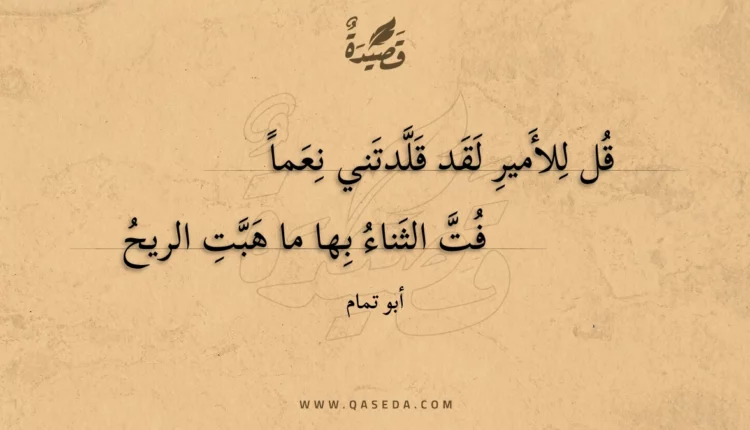 قَصِيدَةٌ
قُل لِلأَميرِ لَقَد قَلَّدتَني نِعَماً
فُتَّ الثَناءُ بِها ما هَبَّتِ الريحُ
أبو تمام
WWW.QASEDA.COM